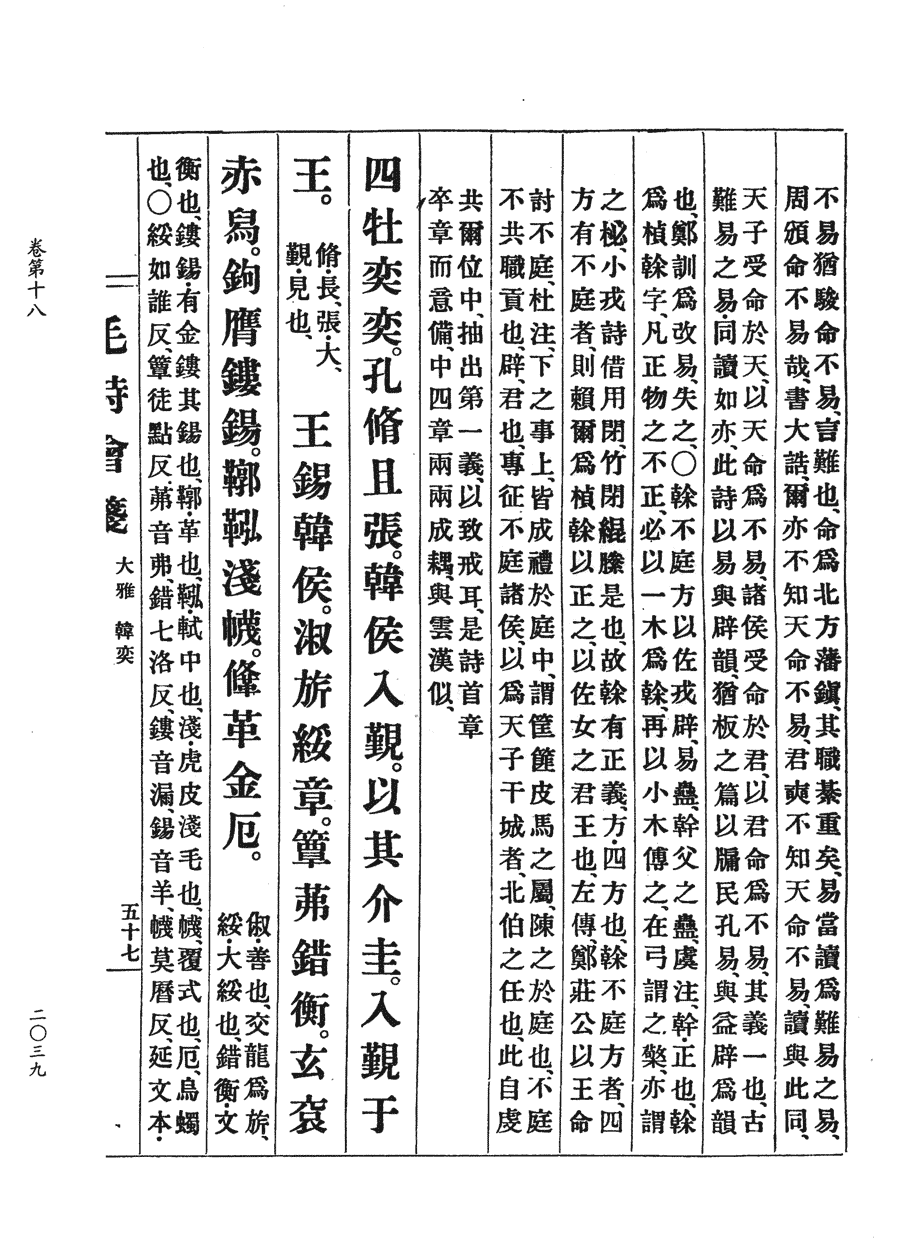 不易、猶駿命不易、言難也、命爲北方藩鎭、其職綦重矣、易當讀爲難易之易、
周頌命不易哉、書大誥、爾亦不知天命不易、君奭不知天命不易、讀與此同、
天子受命於天、以天命爲不易、諸侯受命於君、以君命爲不易、其義一也、古
難易之易、同讀如亦、此詩以易與辟韻、猶板之篇以牖民孔易、與益辟爲韻
也、鄭訓爲改易、失之、〇榦不庭方以佐戎辟、易蠱、幹父之蠱、虞注、幹・正也、榦
爲楨榦字、凡正物之不正、必以一木爲榦、再以小木傅之、在弓謂之檠、亦謂
之柲、小戎詩借用閉、竹閉緄縢是也、故榦有正義、方・四方也、榦不庭方者、四
方有不庭者、則賴爾爲楨榦以正之、以佐女之君王也、左傳、鄭莊公以王命
討不庭、杜注、下之事上、皆成禮於庭中、謂筐篚皮馬之屬、陳之於庭也、不庭
不共職貢也、辟・君也、專征不庭諸侯、以爲天子干城者、北伯之任也、此自虔
共爾位中、抽出第一義、以致戒耳、是詩首章
卒章而意備、中四章兩兩成耦、與雲漢似、
四牡奕奕。孔脩且張。韓侯入覲。以其介圭。入覲于
王。
脩・長、張・大、
覲・見也、
王錫韓侯。淑旂綏章。簟茀錯衡。玄袞
赤舄。鉤膺鏤鍚。鞹鞃淺幭。鞗革金厄。
俶・善也、交龍爲旂、
綏・大綏也、錯衡・文
衡也、鏤鍚・有金鏤其鍚也、鞹・革也、鞃・軾中也、淺・虎皮淺毛也、幭・覆式也、厄・烏蠋
也、〇綏。如誰反、簟徒點反、茀音弗、錯七洛反、鏤音漏、鍚音羊、幭莫曆反、延文本・
毛詩會箋 大雅 韓奕
五十七
卷第十八
二〇三九